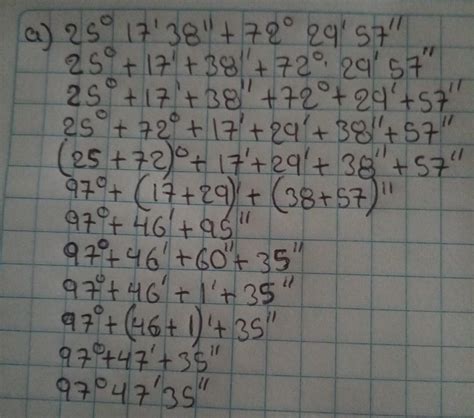 a) 25° 17' 38'' + 72° 29' 57''
25° + 17' + 38'' + 72°· 29' 57''
25° + 17' + 38'' + 72° + 29' + 57''
25° + 72° + 17' + 29' + 38'' + 57''
(25 + 72)° + 17' + 29' + 38'' + 57''
97° + (17 + 29)' + (38 + 57)''
97° + 46' + 95''
97° + 46' + 60'' + 35''
97° + 46' + 1' + 35''
97° + (46 + 1)' + 35''
97° + 47' + 35''
97° 47' 35''